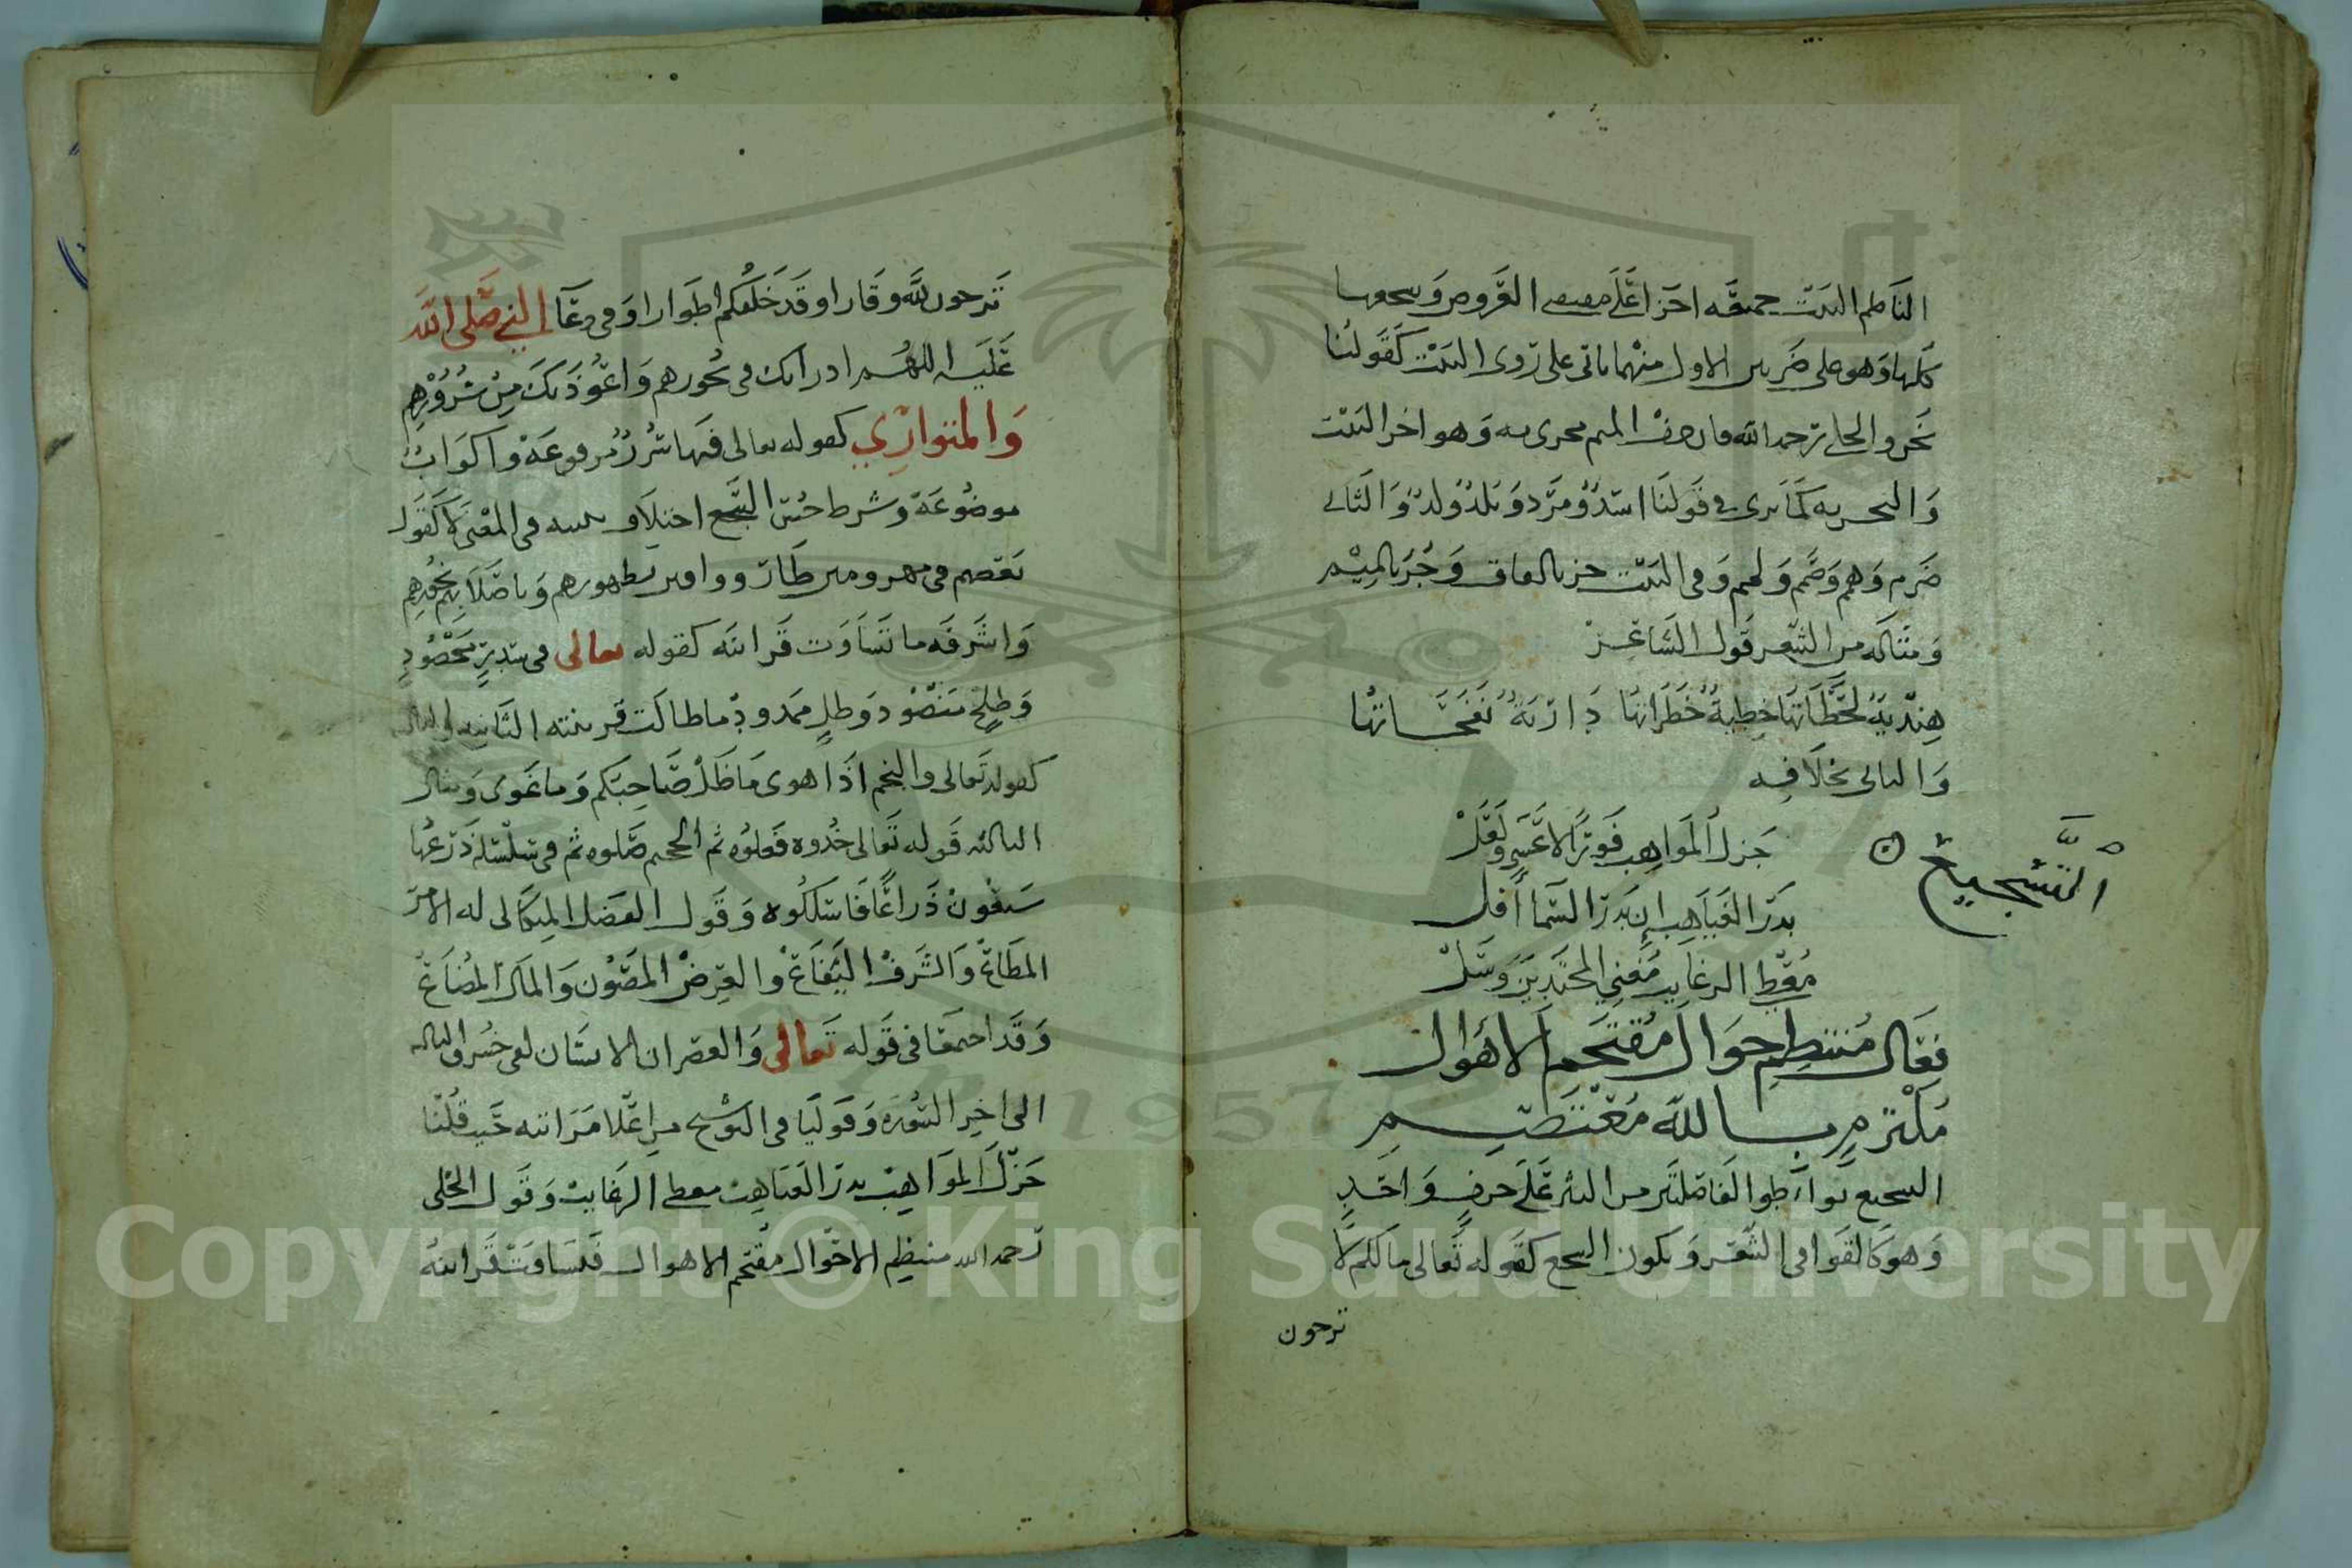 الناظم البيت جميعه اجزا على مقتضى العروض وسجعها
كلها وهو على ضربين الاول منهما ياتي على روي البيت كقولنا
نحن والحلي رحمه الله فان حرف الميم مجرى به وهو اخر البيت
والبحر به كما ترى في قولنا
ضرم وهم وضم ولهم وفي البيت جز بالقاف وجز بالميم
ومثاله من الشعر قول الشاعر
هندية لحظاتها خطية خطراتها دارية نفحاتها
والثاني بخلافه
التسجيع
جزل المواهب
بدر الغياهب إن بدر السما أفل
معطي الرغايب مغني المجتدين
فعال منتظم حوال مقتحم الاهوال
ملتزم بالله معتصم
السجع تواطوا لفاصلتين من النثر على حرف واحد
وهو كالقوافي الشعر ويكون السجع كقوله تعالى ما لكم لا
ترجون
ترجون لله وقارا وقد خلقكم اطوارا وفي دعآ النبي صلى الله
عليه اللهم ادرا بك في نحورهم واعوذ بك من شرورهم
والمتوازي كقوله تعالى فيها سرر مرفوعة واكواب
موضوعة وشرط حسن السجع اختلاف في المعنى لا كقول
بعضهم في وطاروا واقين بظهورهم وباصلابهم نحورهم
واشرفه ما تساوت قراىنه كقوله تعالى في سدر مخضود
وطلح منضود وظل ممدود ثم ما طالت قرينته الثانيه
كقوله تعالى والنجم اذا هوى ما ضل صاحبكم وما غوى
الثالثه قوله تعالى خذوه فغلوه ثم الجحيم صلوه ثم في سلسلة ذرعها
سبعون ذراعا فاسلكوه وقول الفضل الميكالي له الامر
المطاع والشرف اليفاع والعرض المصون والمال المضاع
وقد اجتمعا في قوله تعالى والعصر ان الانسان لفي خسر
الى اخر السورة وقولنا في التوشيح من اعلا مراتبه حيث قلنا
جزل المواهب بدر الغياهب معطي الرغايب وقول الحلي
رحمه الله منتظم الاحوال مقتحم الاهوال فتساوت قراىنه
Copyright © King Saud University
1957